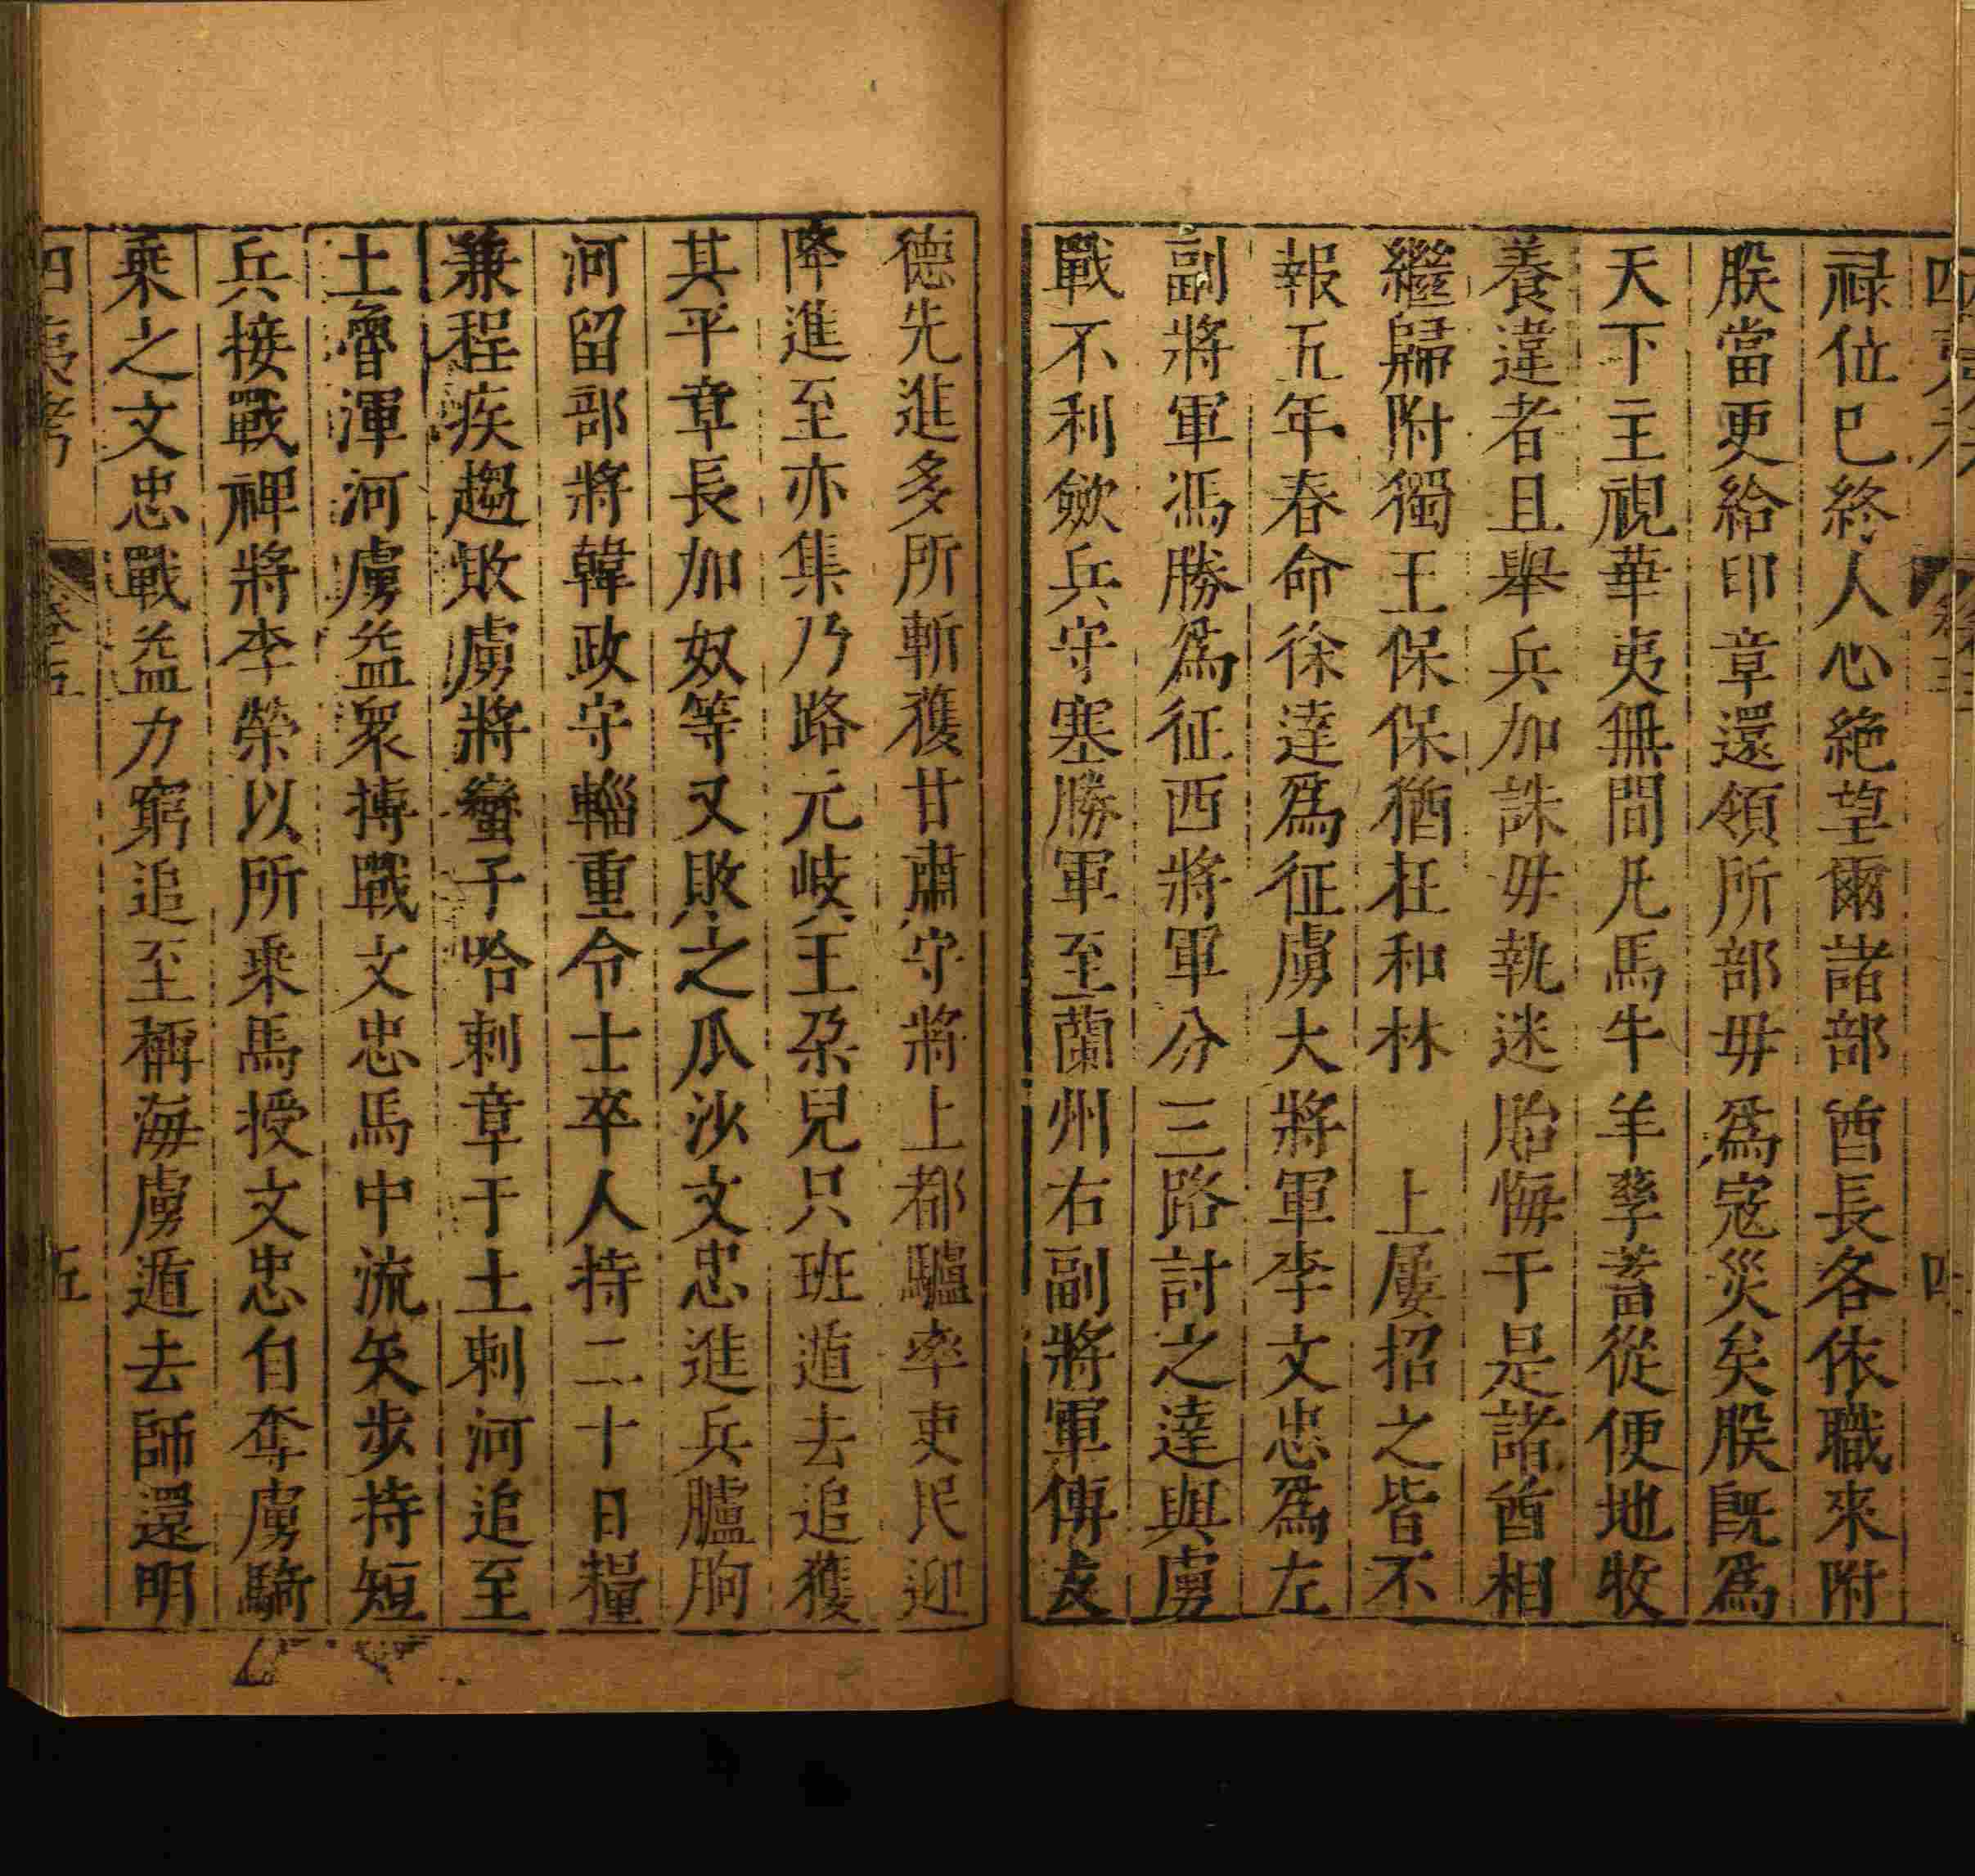 祿位已終人心絶望爾諸部酋長各依職來附
朕當更給印章還領所部毋爲寇災矣朕旣爲
天下主視華夷無間凡馬牛羊孳蓄從便地牧
養違者且舉兵加誅毋執迷胎悔于是諸酋相
繼歸附獨王保保猶在和林　上屢招之皆不
報五年春命徐達爲征虜大將軍李文忠爲左
副將軍馮勝爲征西將軍分三路討之達與虜
戰不利歛兵守塞勝軍至蘭州右副將軍傅友
德先進多所斬獲甘肅守將上都驢率吏民迎
降進至亦集乃路元岐王朶兒只班遁去追獲
其平章長加奴等又敗之瓜沙文忠進兵臚朐
河留部將韓政守輜重令士卒人持二十日糧
兼程疾趨敗虜將蠻子哈剌章于土剌河追至
土魯渾河虜益衆搏戰文忠馬中流矢步持短
兵接戰裨將李榮以所乘馬授文忠自奪虜騎
乘之文忠戰益力窮追至稱海虜遁去師還明
四夷考
卷五
五